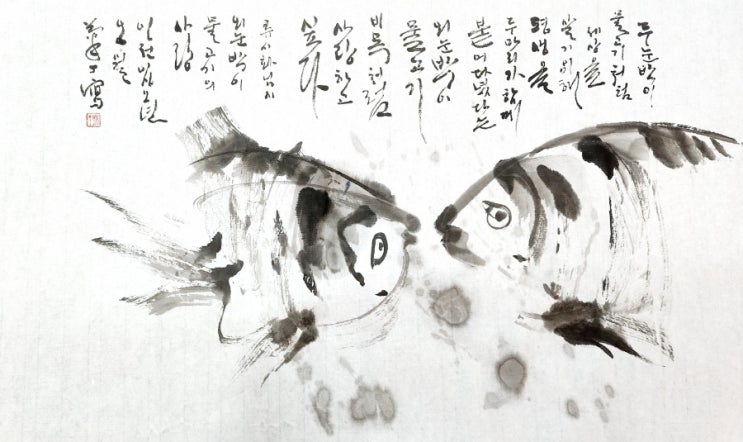 두눈박이
물고기처럼
세상을
살기위해
평생을
두마리가함께
붙어다녔다는
외눈박이
물고기
비목처럼
사랑하고
싶다
류시화님시
외눈박이
물고기의
사랑
오월
寫